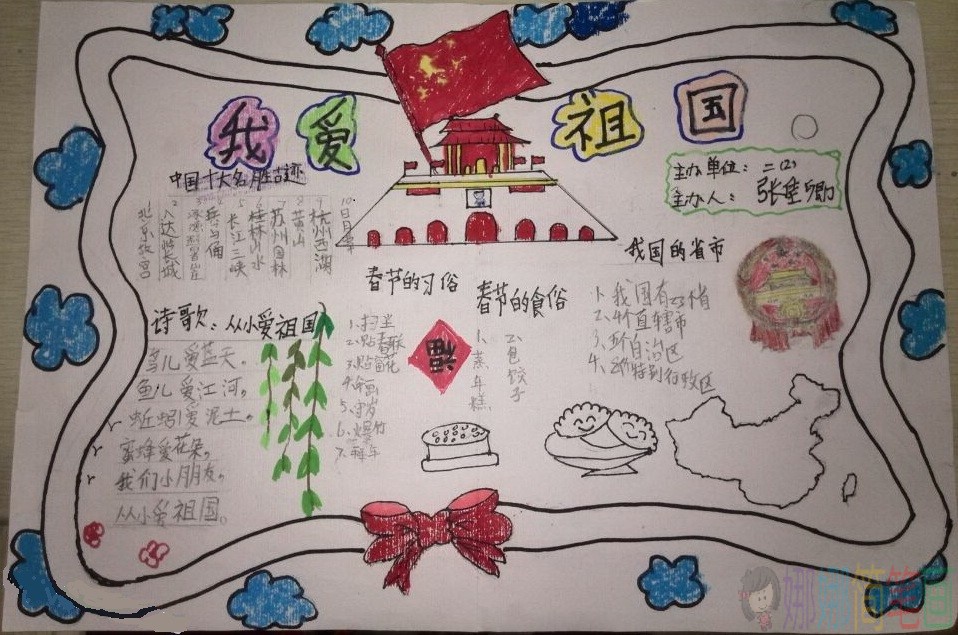 我爱祖国
中国十大名胜古迹
1北京故宫
2八达岭长城
4兵马俑
5长江三峡
6桂林山水
7苏州园林
8黄山
9杭州西湖
10日月潭
主办单位：二(2)
主办人：
我国的省市
1、我国有23个省
2、4个直辖市
3、5个自治区
4、2个特别行政区
春节的习俗
1、扫尘
2、贴春联
3、贴窗花
5、守岁
6、爆竹
7、拜年
福
春节的食俗
1、蒸年糕
2、包饺子
诗歌：从小爱祖国
鸟儿爱蓝天。
鱼儿爱江河。
蚯蚓爱泥土。
蜜蜂爱花朵。
我们小朋友。
从小爱祖国。
娜娜简笔画